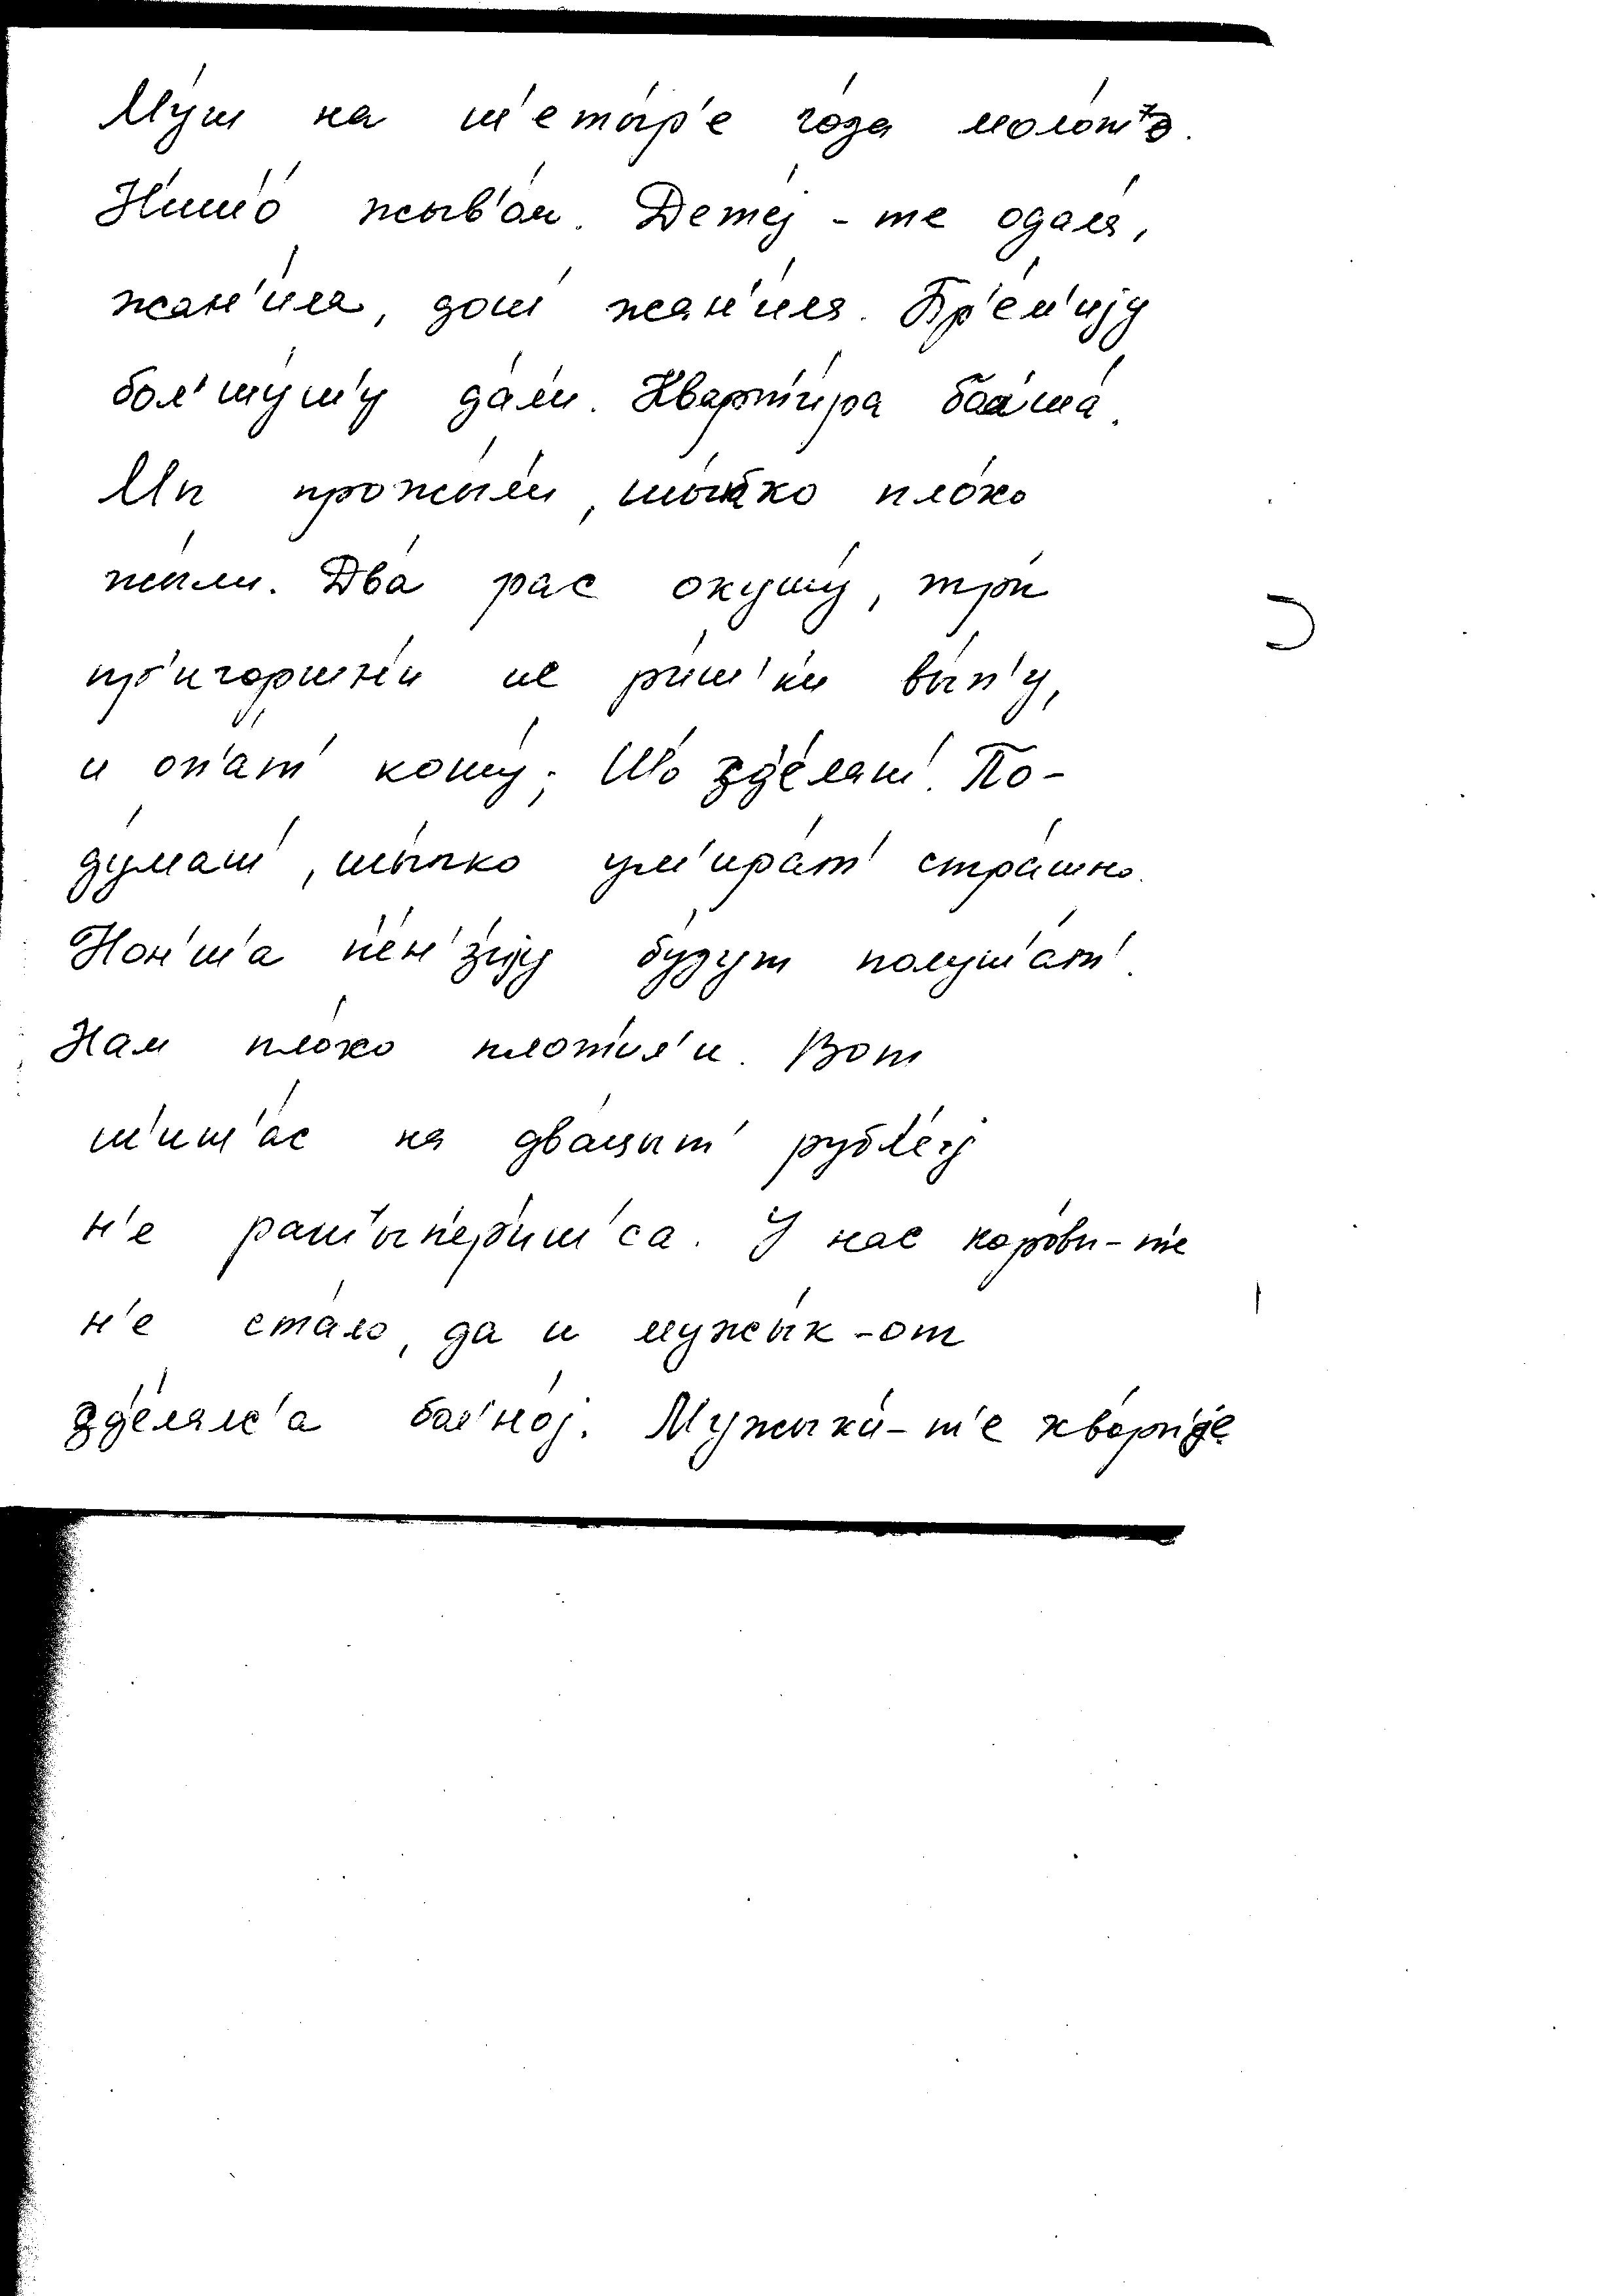 Му́ш на ш'еты́р'е го́да моло́т'э.
Н'иш'о́ жыв'о́м. Дете́j-те одала́,
жан'и́ла, дош' жан'и́ла. Бр'е́м'иjу
бол'шу́ш'у да́л'и. Кварт'и́ра бол'ша́.
Мы прожы́л'и, шы́пко пло́хо
жы́ли. Два́ рас окушу́, тр'и
пр'игоршн'и ис р'и́ш'к'и вы́п'у,
и оп'а́т' кошу́; Ш'о з'д'е́лаш'. По-
ду́маш', шы́пко ум'ира́т' стра́шно.
Нон'ш'а п'е́н'з'иjу бу́дут полуш'а́т'.
Нам пло́хо плот'и́л'и. Вот
ш'иш'а́с на два́цыт' рубл'е́j
н'е раштып'е́р'иш'са. У нас коро́вы-т'е
н'е ста́ло, да и мужы́к-от
з'д'е́лалс'а бол'но́j. Мужык'и́-т'е хво́рп'д'е